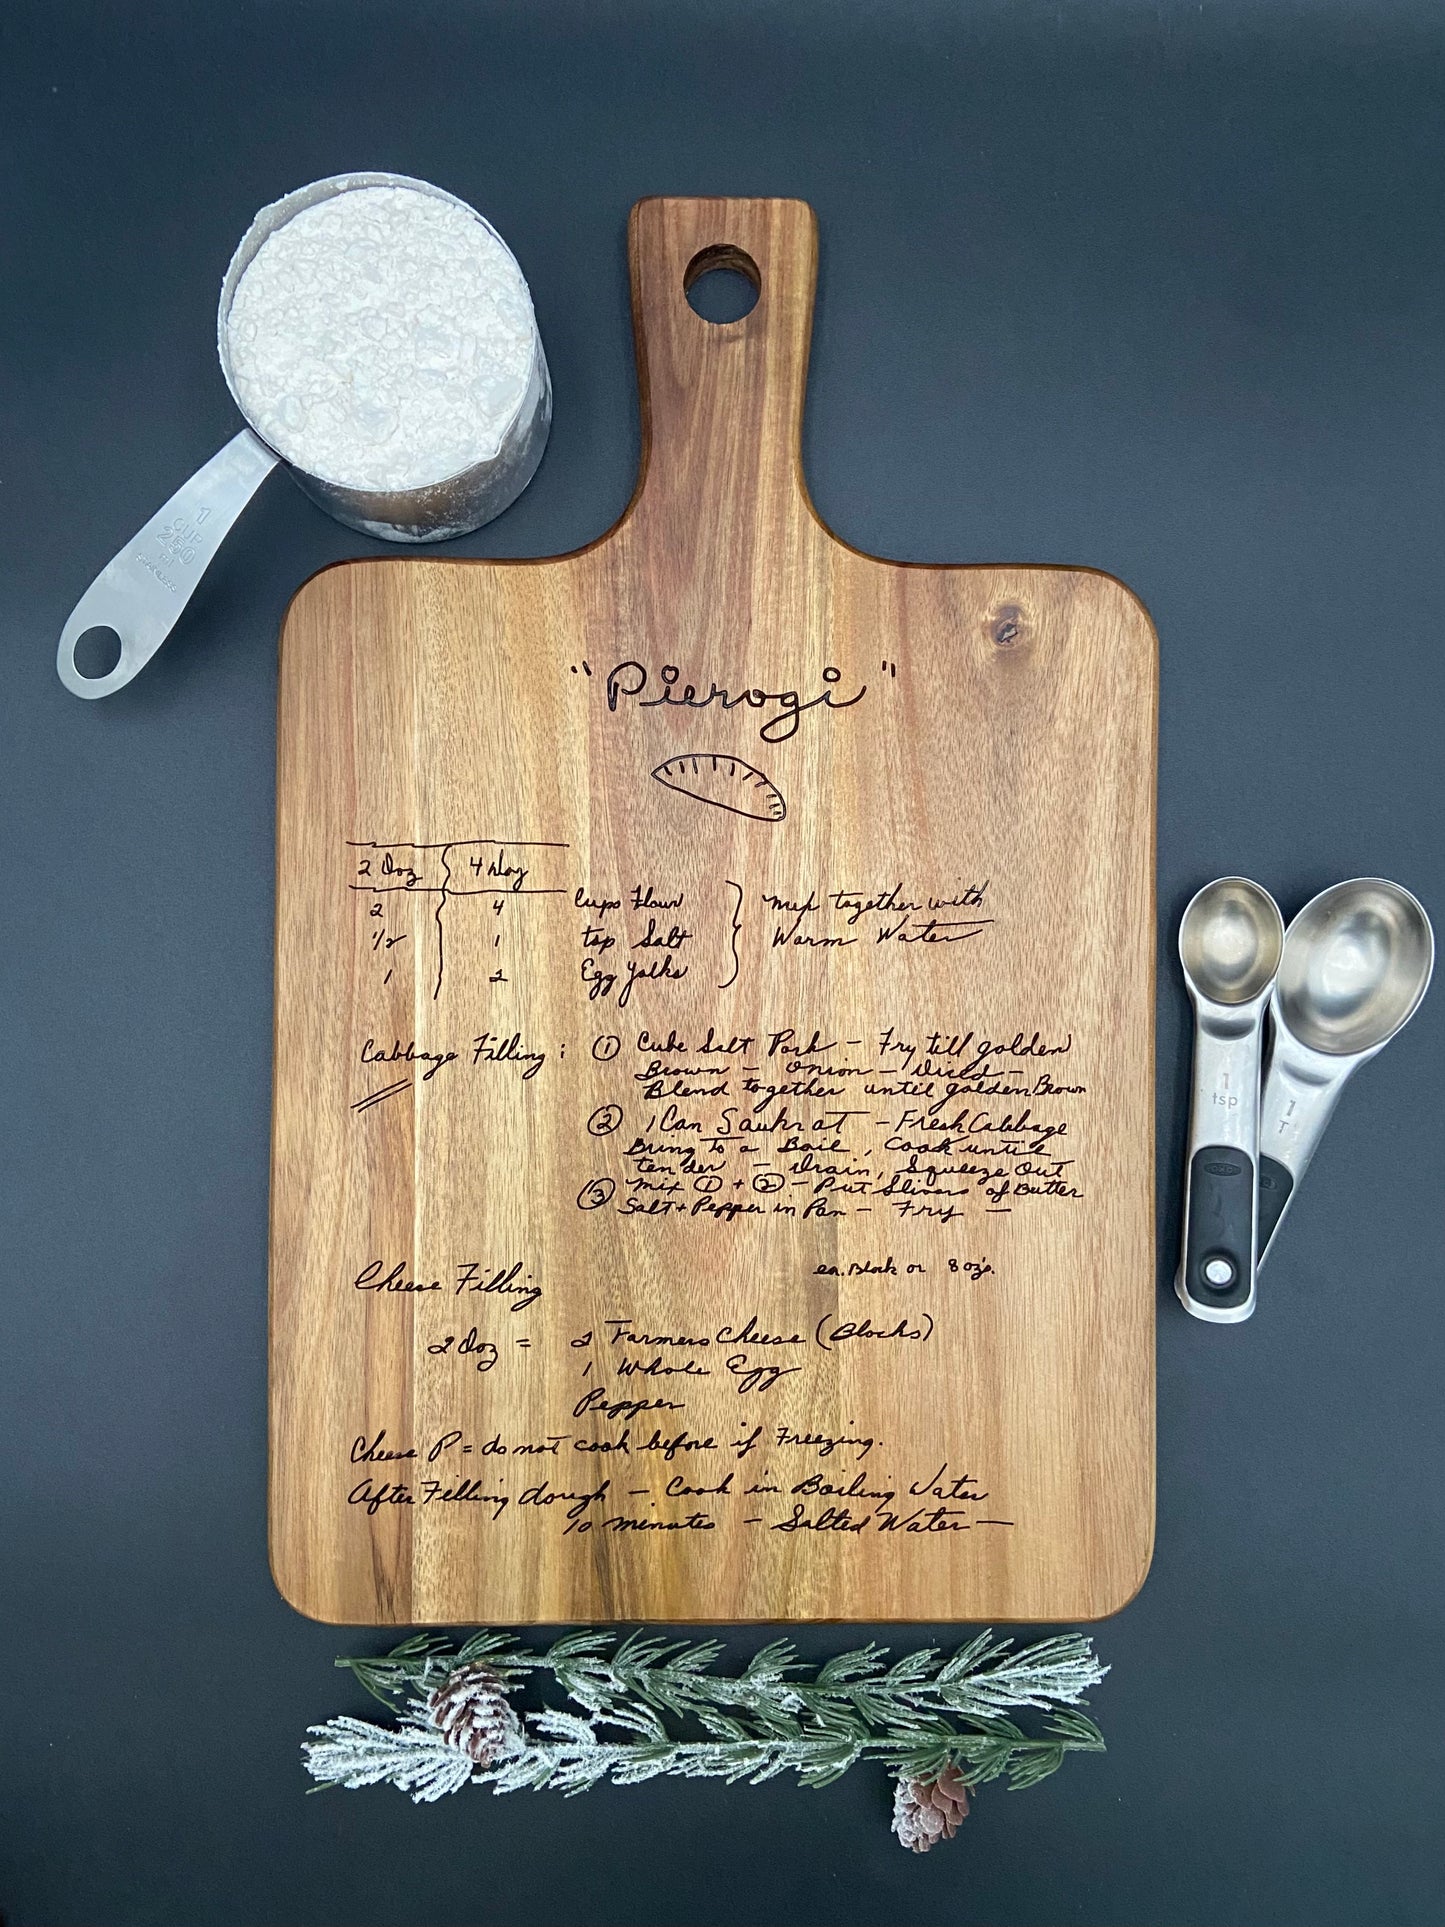 1
CUP
250
ml
STAINLESS
"Pierogi"
2 Doz 4 Doz
2 4 Cups Flour
1/2 1 tsp Salt
1 2 Egg Yolks
Mix together with
Warm Water
Cabbage Filling: ① Cube Salt Pork - Fry till golden
Brown - Onion - Diced -
Blend together until golden Brown
② 1 Can Saukrat - Fresh Cabbage
Bring To a Boil, Cook until
tender - Drain, Squeeze Out
③ Mix ① + ② - Put Slivers of Butter
Salt + Pepper in Pan - Fry -
Cheese Filling
ea. Block or 8 oz's.
2 Doz = 2 Farmers Cheese (Blocks)
1 Whole Egg
Pepper
Cheese P = do not cook before if Freezing.
After Filling dough - Cook in Boiling Water
10 minutes - Salted Water -
1
tsp
OXO
1
T